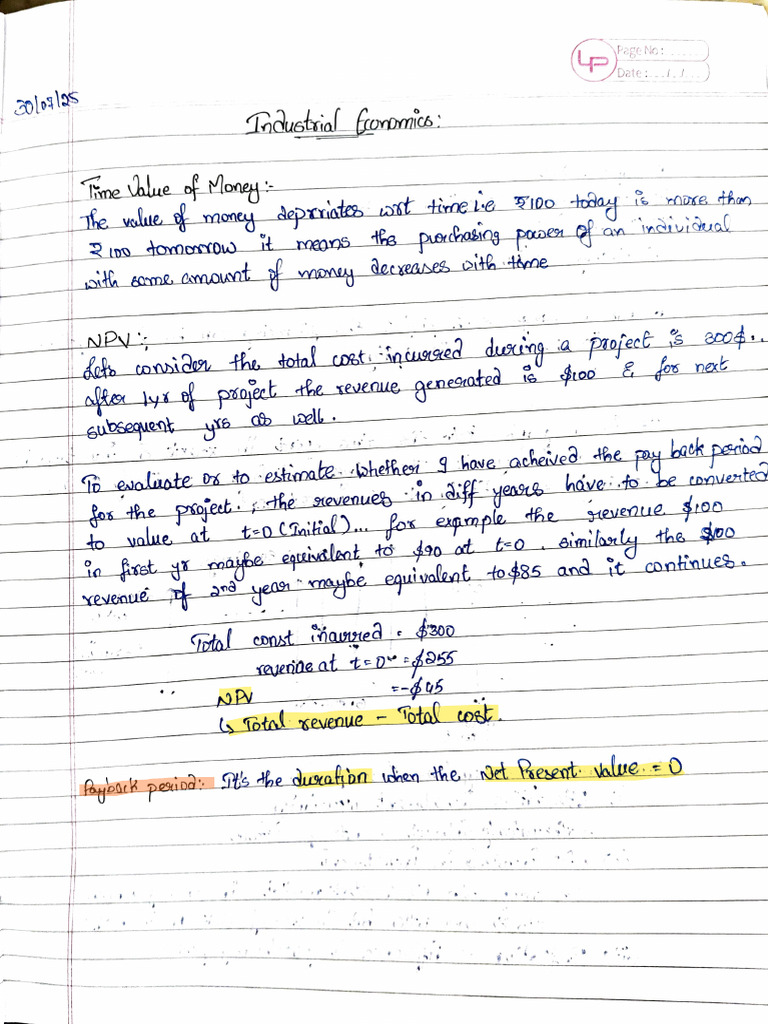 LP
Page No: ......
Date: .../.../...
30/07/25
Industrial Economics:
Time Value of Money:-
The value of money depriates wrt time i.e ₹100 today is more than
₹100 tomorrow it means the purchasing power of an individual
with same amount of money decreases with time
NPV:-
Lets consider the total cost incurred during a project is 300$..
after 1yr of project the revenue generated is $100 & for next
subsequent yrs as well.
To evaluate or to estimate whether I have acheived the pay back period
for the project, the revenues in diff years have to be converted
to value at t=0 (Initial)... for example the revenue $100
in first yr maybe equivalent to $90 at t=0. similarly the $100
revenue of 2nd year maybe equivalent to $85 and it continues.
Total const incurred = $300
revenue at t=0 = $255
NPV = -$45
↳ Total revenue - Total cost.
Payback period:- It's the duration when the Net Present value = 0